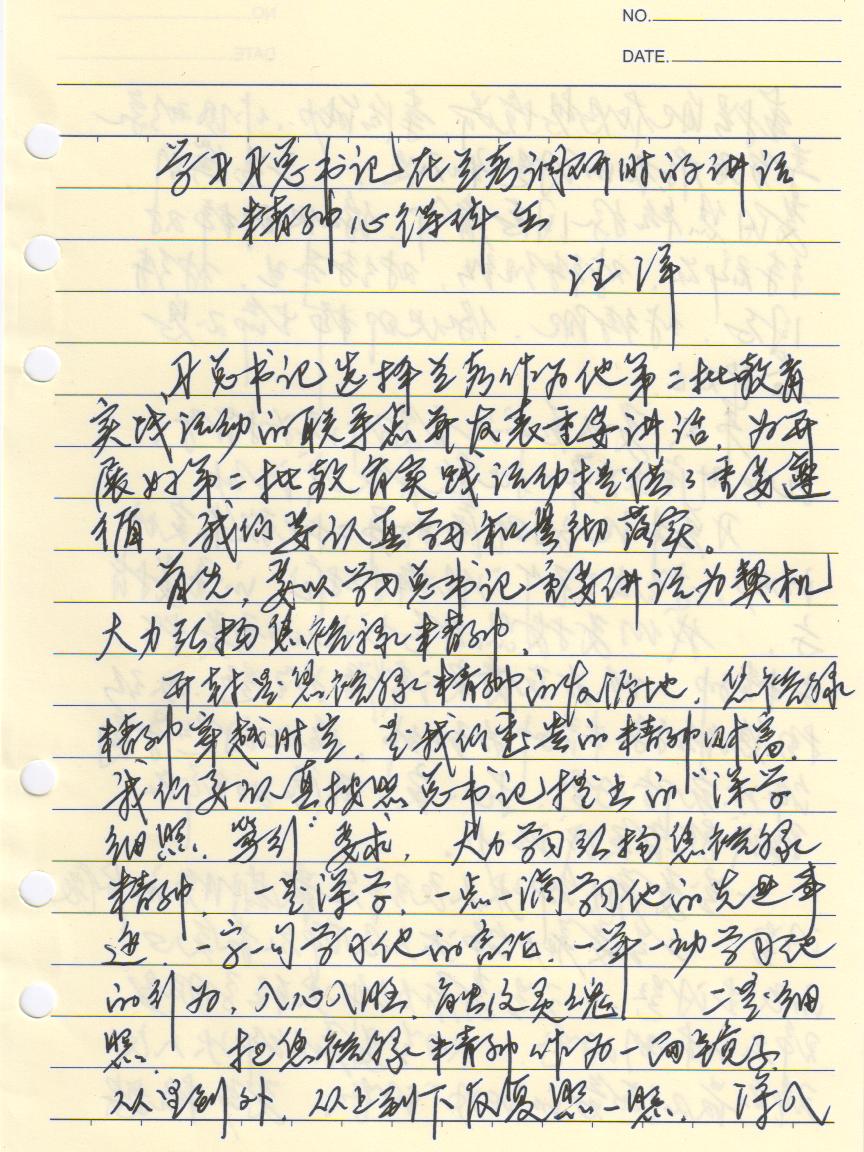 NO.
DATE.
学习习总书记在兰考调研时的讲话
精神心得体会
汪洋
习总书记选择兰考作为他第二批教育
实践活动的联系点并发表重要讲话，为开
展好第二批教育实践活动提供了重要遵
循，我们要认真学习和贯彻落实。
首先，要以学习总书记重要讲话为契机
大力弘扬焦裕禄精神。
开封是焦裕禄精神的发源地，焦裕禄
精神穿越时空，是我们宝贵的精神财富。
我们要认真按照总书记提出的“深学
细照、笃行”要求，大力学习弘扬焦裕禄
精神，一是深学，一点一滴学习他的先进事
迹，一字一句学习他的言论，一举一动学习他
的行为，入心入脑，灵魂 二是细
照，把焦裕禄精神作为一面镜子
从里到外，从上到下反复照一照，深入